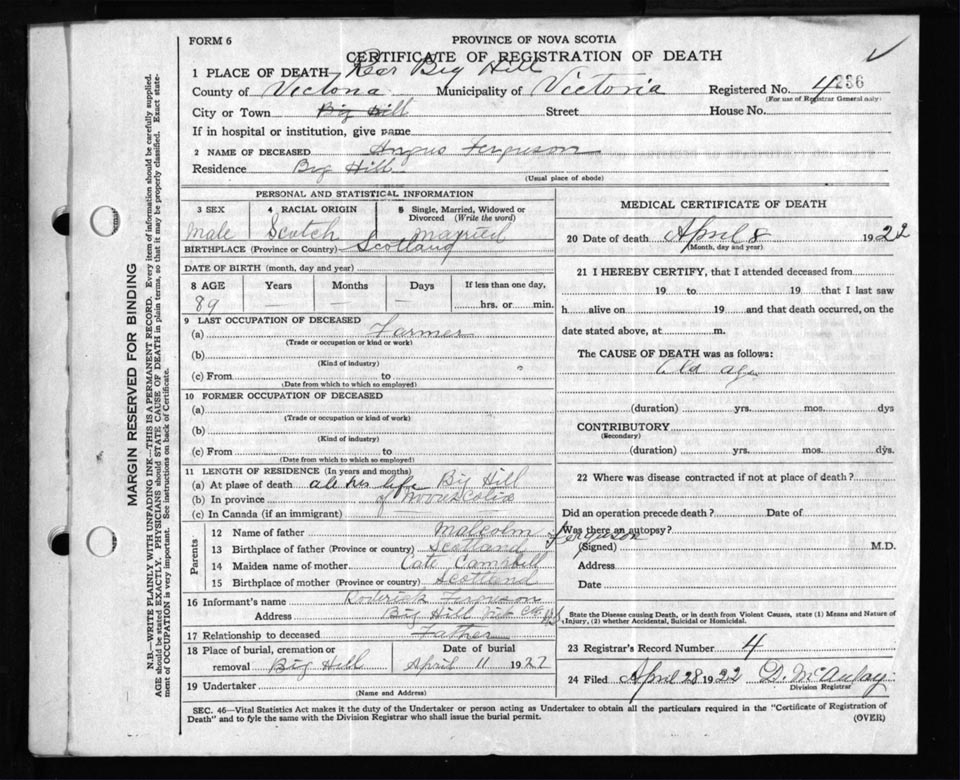 FORM 6
PROVINCE OF NOVA SCOTIA
CERTIFICATE OF REGISTRATION OF DEATH
1 PLACE OF DEATH Rear Big Hill
County of Victoria Municipality of Victoria Registered No. 4 236
(For use of Registrar General only)
City or Town Big Hill Street House No.
If in hospital or institution, give name
2 NAME OF DECEASED Angus Ferguson
Residence Big Hill
(Usual place of abode)
PERSONAL AND STATISTICAL INFORMATION
3 SEX 4 RACIAL ORIGIN 5 Single, Married, Widowed or Divorced (Write the word)
Male Scotch Married
BIRTHPLACE (Province or Country) Scotland
DATE OF BIRTH (month, day and year)
8 AGE Years Months Days If less than one day,
89 — — — hrs. or min.
9 LAST OCCUPATION OF DECEASED
(a) Farmer
(Trade or occupation or kind or work)
(b)
(Kind of industry)
(c) From to
(Date from which to which so employed)
10 FORMER OCCUPATION OF DECEASED
(a)
(Trade or occupation or kind of work)
(b)
(Kind of industry)
(c) From to
(Date from which to which so employed)
11 LENGTH OF RESIDENCE (In years and months)
(a) At place of death all his life Big Hill
(b) In province of Nova Scotia
(c) In Canada (if an immigrant)
Parents
12 Name of father Malcolm Ferguson
13 Birthplace of father (Province or country) Scotland
14 Maiden name of mother Cate Campbell
15 Birthplace of mother (Province or country) Scotland
16 Informant's name Roderick Ferguson
Address Big Hill Vict Co. N.S.
17 Relationship to deceased Father
18 Place of burial, cremation or removal Big Hill Date of burial April 11 1922
19 Undertaker
(Name and Address)
MEDICAL CERTIFICATE OF DEATH
20 Date of death April 8 1922
(Month, day and year)
21 I HEREBY CERTIFY, that I attended deceased from
19 to 19 that I last saw
h alive on 19 and that death occurred, on the
date stated above, at m.
The CAUSE OF DEATH was as follows:
Old age
(duration) yrs. mos. dys
CONTRIBUTORY
(Secondary)
(duration) yrs. mos. dys.
22 Where was disease contracted if not at place of death?
Did an operation precede death? Date of
Was there an autopsy?
(Signed) M.D.
Address
Date
State the Disease causing Death, or in death from Violent Causes, state (1) Means and Nature of
Injury, (2) whether Accidental, Suicidal or Homicidal.
23 Registrar's Record Number 4
24 Filed April 28 1922 D. McAulay
Division Registrar
SEC. 46—Vital Statistics Act makes it the duty of the Undertaker or person acting as Undertaker to obtain all the particulars required in the "Certificate of Registration of
Death" and to fyle the same with the Division Registrar who shall issue the burial permit.
(OVER)
MARGIN RESERVED FOR BINDING
N.B.—WRITE PLAINLY WITH UNFADING INK—THIS IS A PERMANENT RECORD. Every item of information should be carefully supplied.
AGE should be stated EXACTLY. PHYSICIANS should STATE CAUSE OF DEATH in plain terms, so that it may be properly classified. Exact state-
ment of OCCUPATION is very important. See instructions on back of Certificate.